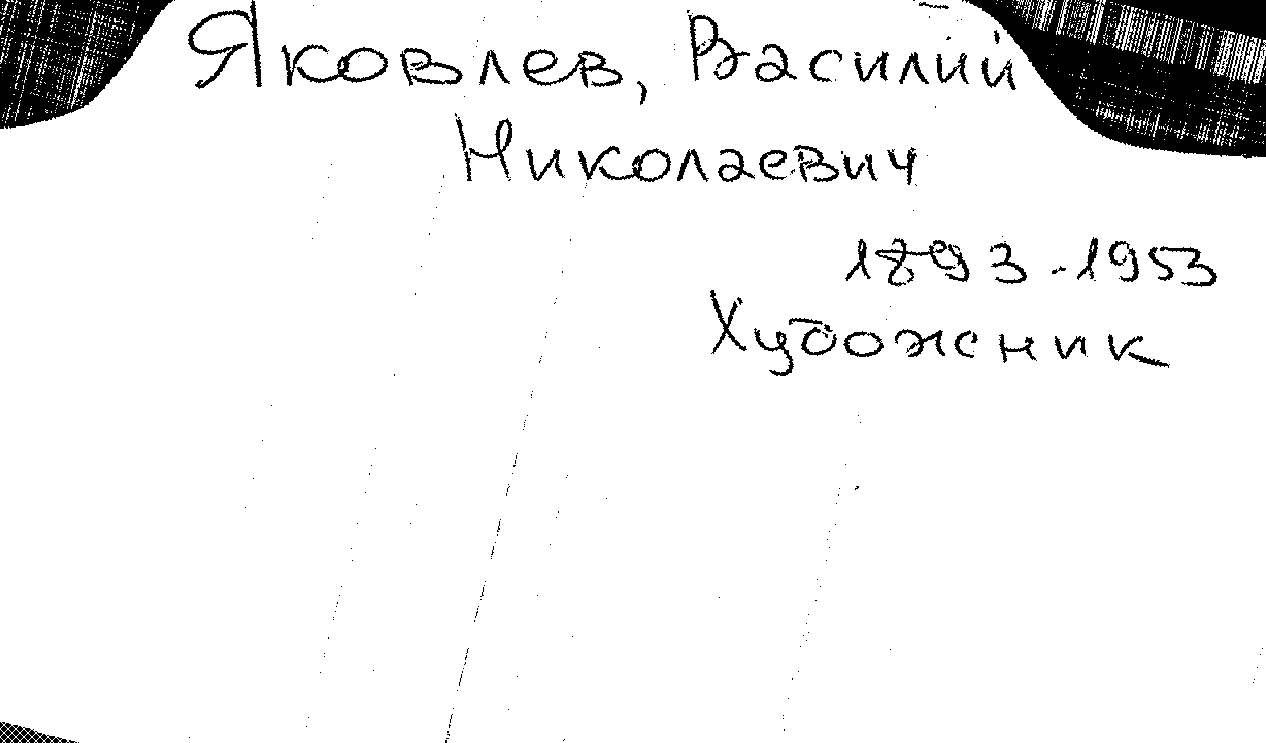 Яковлев, Василий
Николаевич
1893-1953
Художник